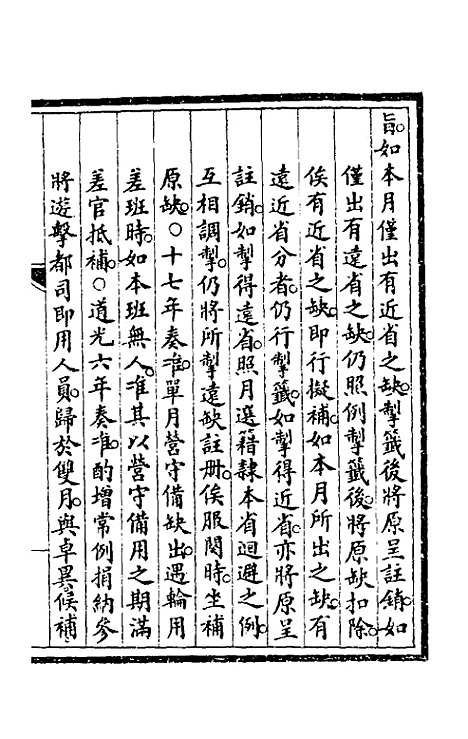 旨。如本月僅出有近省之缺。掣籤後將原呈註銷。如
僅出有遠省之缺。仍照例掣籤後。將原缺扣除。
俟有近省之缺。即行擬補。如本月所出之缺。有
遠近省分者。仍行掣籤。如掣得近省。亦將原呈
註銷。如掣得遠省。照月選籍隸本省迴避之例。
互相調掣。仍將所掣遠缺註冊。俟服闋時。坐補
原缺。○十七年奏准。單月營守備缺出。遇輪用
差班時。如本班無人。准其以營守備用之期滿
差官抵補。○道光六年奏准。酌增常例捐納參
將遊擊都司即用人員。歸於雙月。與卓異候補